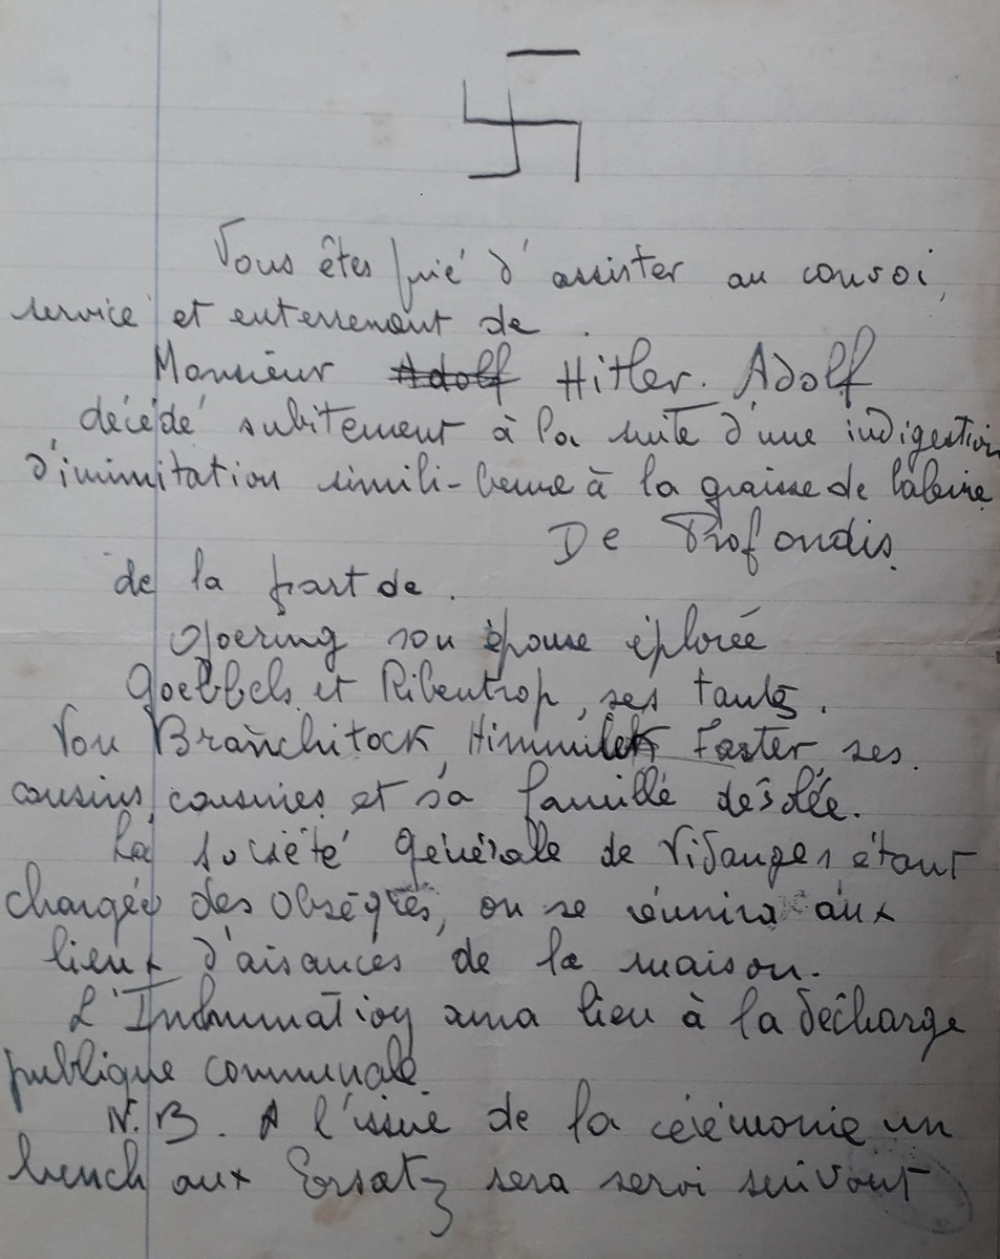 Vous êtes prié d'assister au convoi,
service et enterrement de.
Monsieur Adolf Hitler. Adolf
décédé subitement à la suite d'une indigestion
d'immitation simili-beurre à la graisse de baleine
De Profondis.
de la part de.
Goering son épouse éplorée
Goebbels et Ribentrop, ses tantes.
Von Branchitock, Himmler Faster, ses
cousins, cousines et sa famille désolée.
La société générale de Vidanges étant
chargée des Obsèques, on se réunira aux
lieux d'aisances de la maison.
L'Inhumation aura lieu à la décharge
publique communale.
N.B. A l'issue de la cérémonie un
lunch aux Ersatz sera servi suivant